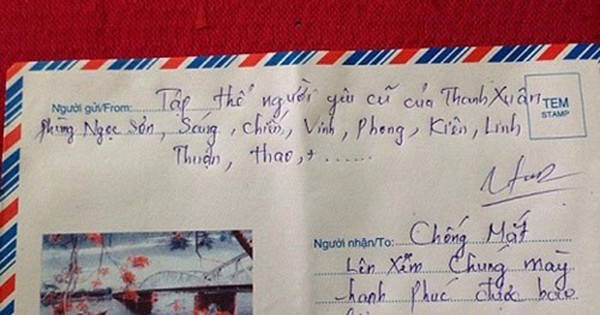 Người gửi/From: Tập thể người yêu cũ của Thanh Xuân
TEM
STAMP
Phùng Ngọc Sơn, Sáng, Chiến, Vinh, Phong, Kiên, Linh
Thuận, thao, + ......
Người nhận/To: Chống Mắt
Lên Xem Chúng mày
hạnh phúc được bao